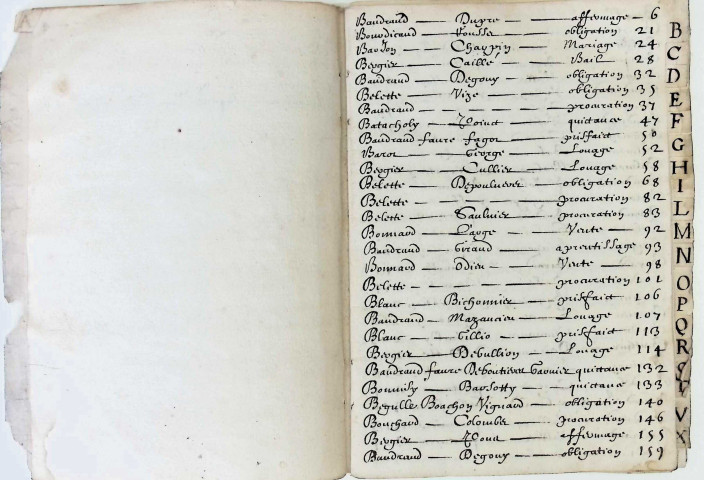 Baudrand — Dupre — affermage — 6
Bourdicaud — Rousse — obligation 21
Barjon — Chappin — Mariage 24
Bergier — Caille — Bail 28
Baudrand — Degouy — obligation 32
Belette — Vize — obligation 35
Baudrand — procuration 37
Batacholy — quictance 47
Baudrand faure fagot — prisfaict 50
Barot — George — Louage 52
Bergier — Cullier — Louage 58
Belette — obligation 68
Belette — procuration 82
Belette — Saulnier — procuration 83
Bonnard — Lauge — Vente — 92
Baudrand — Giraud — aprentissage 93
Bonnard — Odier — Vente — 98
Belette — procuration 101
Blanc — Bichonnier — prisfaict 106
Baudrand — Mazancieu — Louage 107
Blanc — Gillio — prisfaict 113
Bergier — Debullion — Louage 114
Baudrand faure Deboutieres Garnier quictance 132
Bonnisy — Barsotty — quictance 133
Begulle Boachon Vignard — obligation 140
Bouchard — Colombet — procuration 146
Bergier — Roux — affermage 155
Baudrand — Degouy — obligation 159
B
C
D
E
F
G
H
I
L
M
N
O
P
Q
R
S
T
V
X